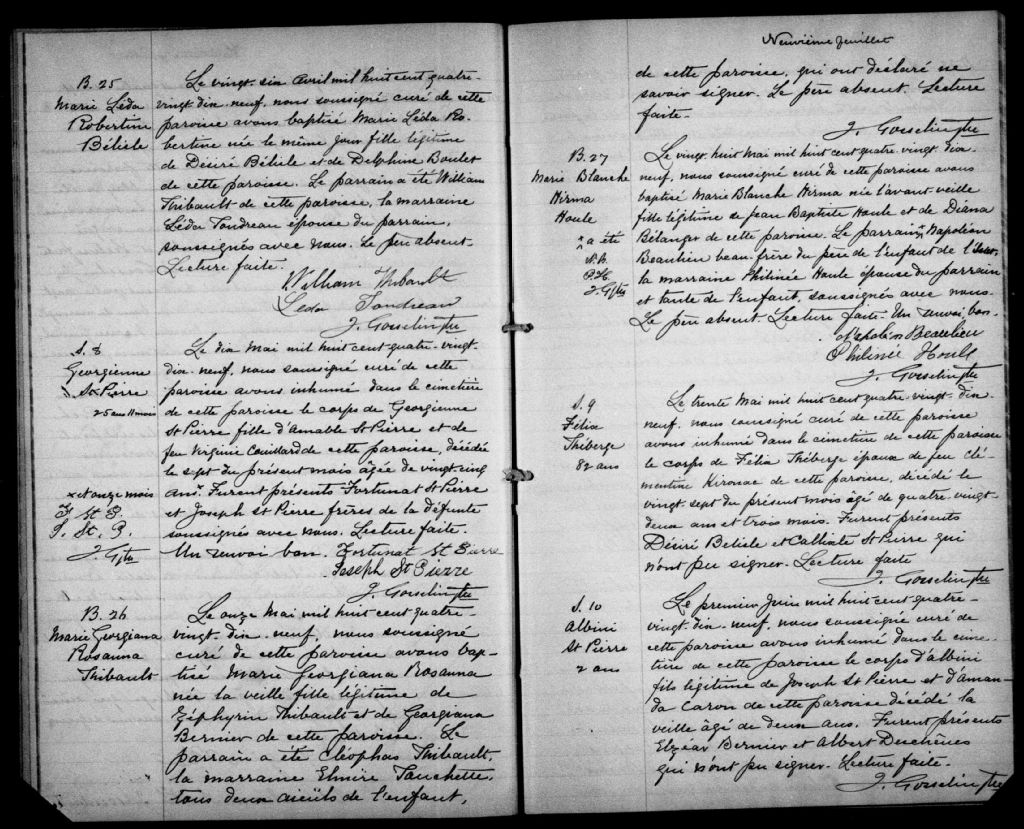 B. 25
Marie Léda
Robertine
Bélisle
Le vingt-six Avril mil huit cent quatre-
vingt-dix-neuf, nous soussigné curé de cette
paroisse avons baptisé Marie Léda Ro-
bertine née le même jour fille légitime
de Désiré Bélisle et de Delphine Boulet
de cette paroisse. Le parrain a été William
Thibault de cette paroisse, la marraine
Léda Tondreau épouse du parrain,
soussignés avec nous. Le père absent.
Lecture faite.
William Thibault
Leda Tondreau
J. Gosselin Ptre
S. 8
Georgienne
St Pierre
25 ans 11 mois
Le dix Mai mil huit cent quatre-vingt-
dix-neuf, nous soussigné curé de cette
paroisse avons inhumé dans le cimetière
de cette paroisse le corps de Georgienne
St Pierre fille d'Amable St Pierre et de
feu Virginie Couillard de cette paroisse, décédée
le sept du présent mois agée de vingt cinq
x et onze mois
F. St. P.
J. St. P.
J. G. Ptre
ans x. Furent présents Fortunat St Pierre
et Joseph St Pierre frères de la défunte
soussignés avec nous. Lecture faite.
Un renvoi bon. Fortunat St Pierre
Joseph St Pierre
J. Gosselin Ptre
B. 26
Marie Georgiana
Rosanna
Thibault
Le onze Mai mil huit cent quatre-
vingt-dix-neuf, nous soussigné
curé de cette paroisse avons bap-
tisé Marie Georgiana Rosanna
née la veille fille légitime de
Zéphyrin Thibault et de Georgiana
Bernier de cette paroisse. Le
parrain a été Cléophas Thibault,
la marraine Elmire Panchette,
tous deux aieüls de l'enfant,
Neuvième feuillet
de cette paroisse, qui ont déclaré ne
savoir signer. Le père absent. Lecture
faite.
J. Gosselin Ptre
B. 27
Marie Blanche
Hirma
Houle
x a été
N. B.
P. H.
J. G. Ptre
Le vingt-huit Mai mil huit cent quatre-vingt-dix-
neuf, nous soussigné curé de cette paroisse avons
baptisé Marie Blanche Hirma née l'avant-veille
fille légitime de Jean Baptiste Houle et de Diana
Bélanger de cette paroisse. Le parrain x Napoléon
Beaulieu beau-frère du père de l'enfant de l'Islet,
la marraine Philinée Houle épouse du parrain
et tante de l'enfant, soussignés avec nous.
Le père absent. Lecture faite. Un renvoi bon.
Napoléon Beaulieu
Philinée Houle
J. Gosselin Ptre
S. 9
Félix
Thiberge
82 ans
Le trente Mai mil huit cent quatre-vingt-dix-
neuf, nous soussigné curé de cette paroisse
avons inhumé dans le cimetière de cette paroisse
le corps de Félix Théberge époux de feu Clé-
mentine Kirouac de cette paroisse, décédé le
vingt sept du présent mois âgé de quatre-vingt-
deux ans et trois mois. Furent présents
Désiré Belisle et Calixte St Pierre qui
n'ont pu signer. Lecture faite
J. Gosselin Ptre
S. 10
Albini
St Pierre
2 ans
Le premier Juin mil huit cent quatre-
vingt-dix-neuf, nous soussigné curé de
cette paroisse avons inhumé dans le cime-
tière de cette paroisse le corps d'Albini
fils légitime de Joseph St Pierre et d'Aman-
da Caron de cette paroisse décédé la
veille âgé de deux ans. Furent présents
Elzéar Bernier et Albert Duchènes
qui n'ont pu signer. Lecture faite.
J. Gosselin Ptre